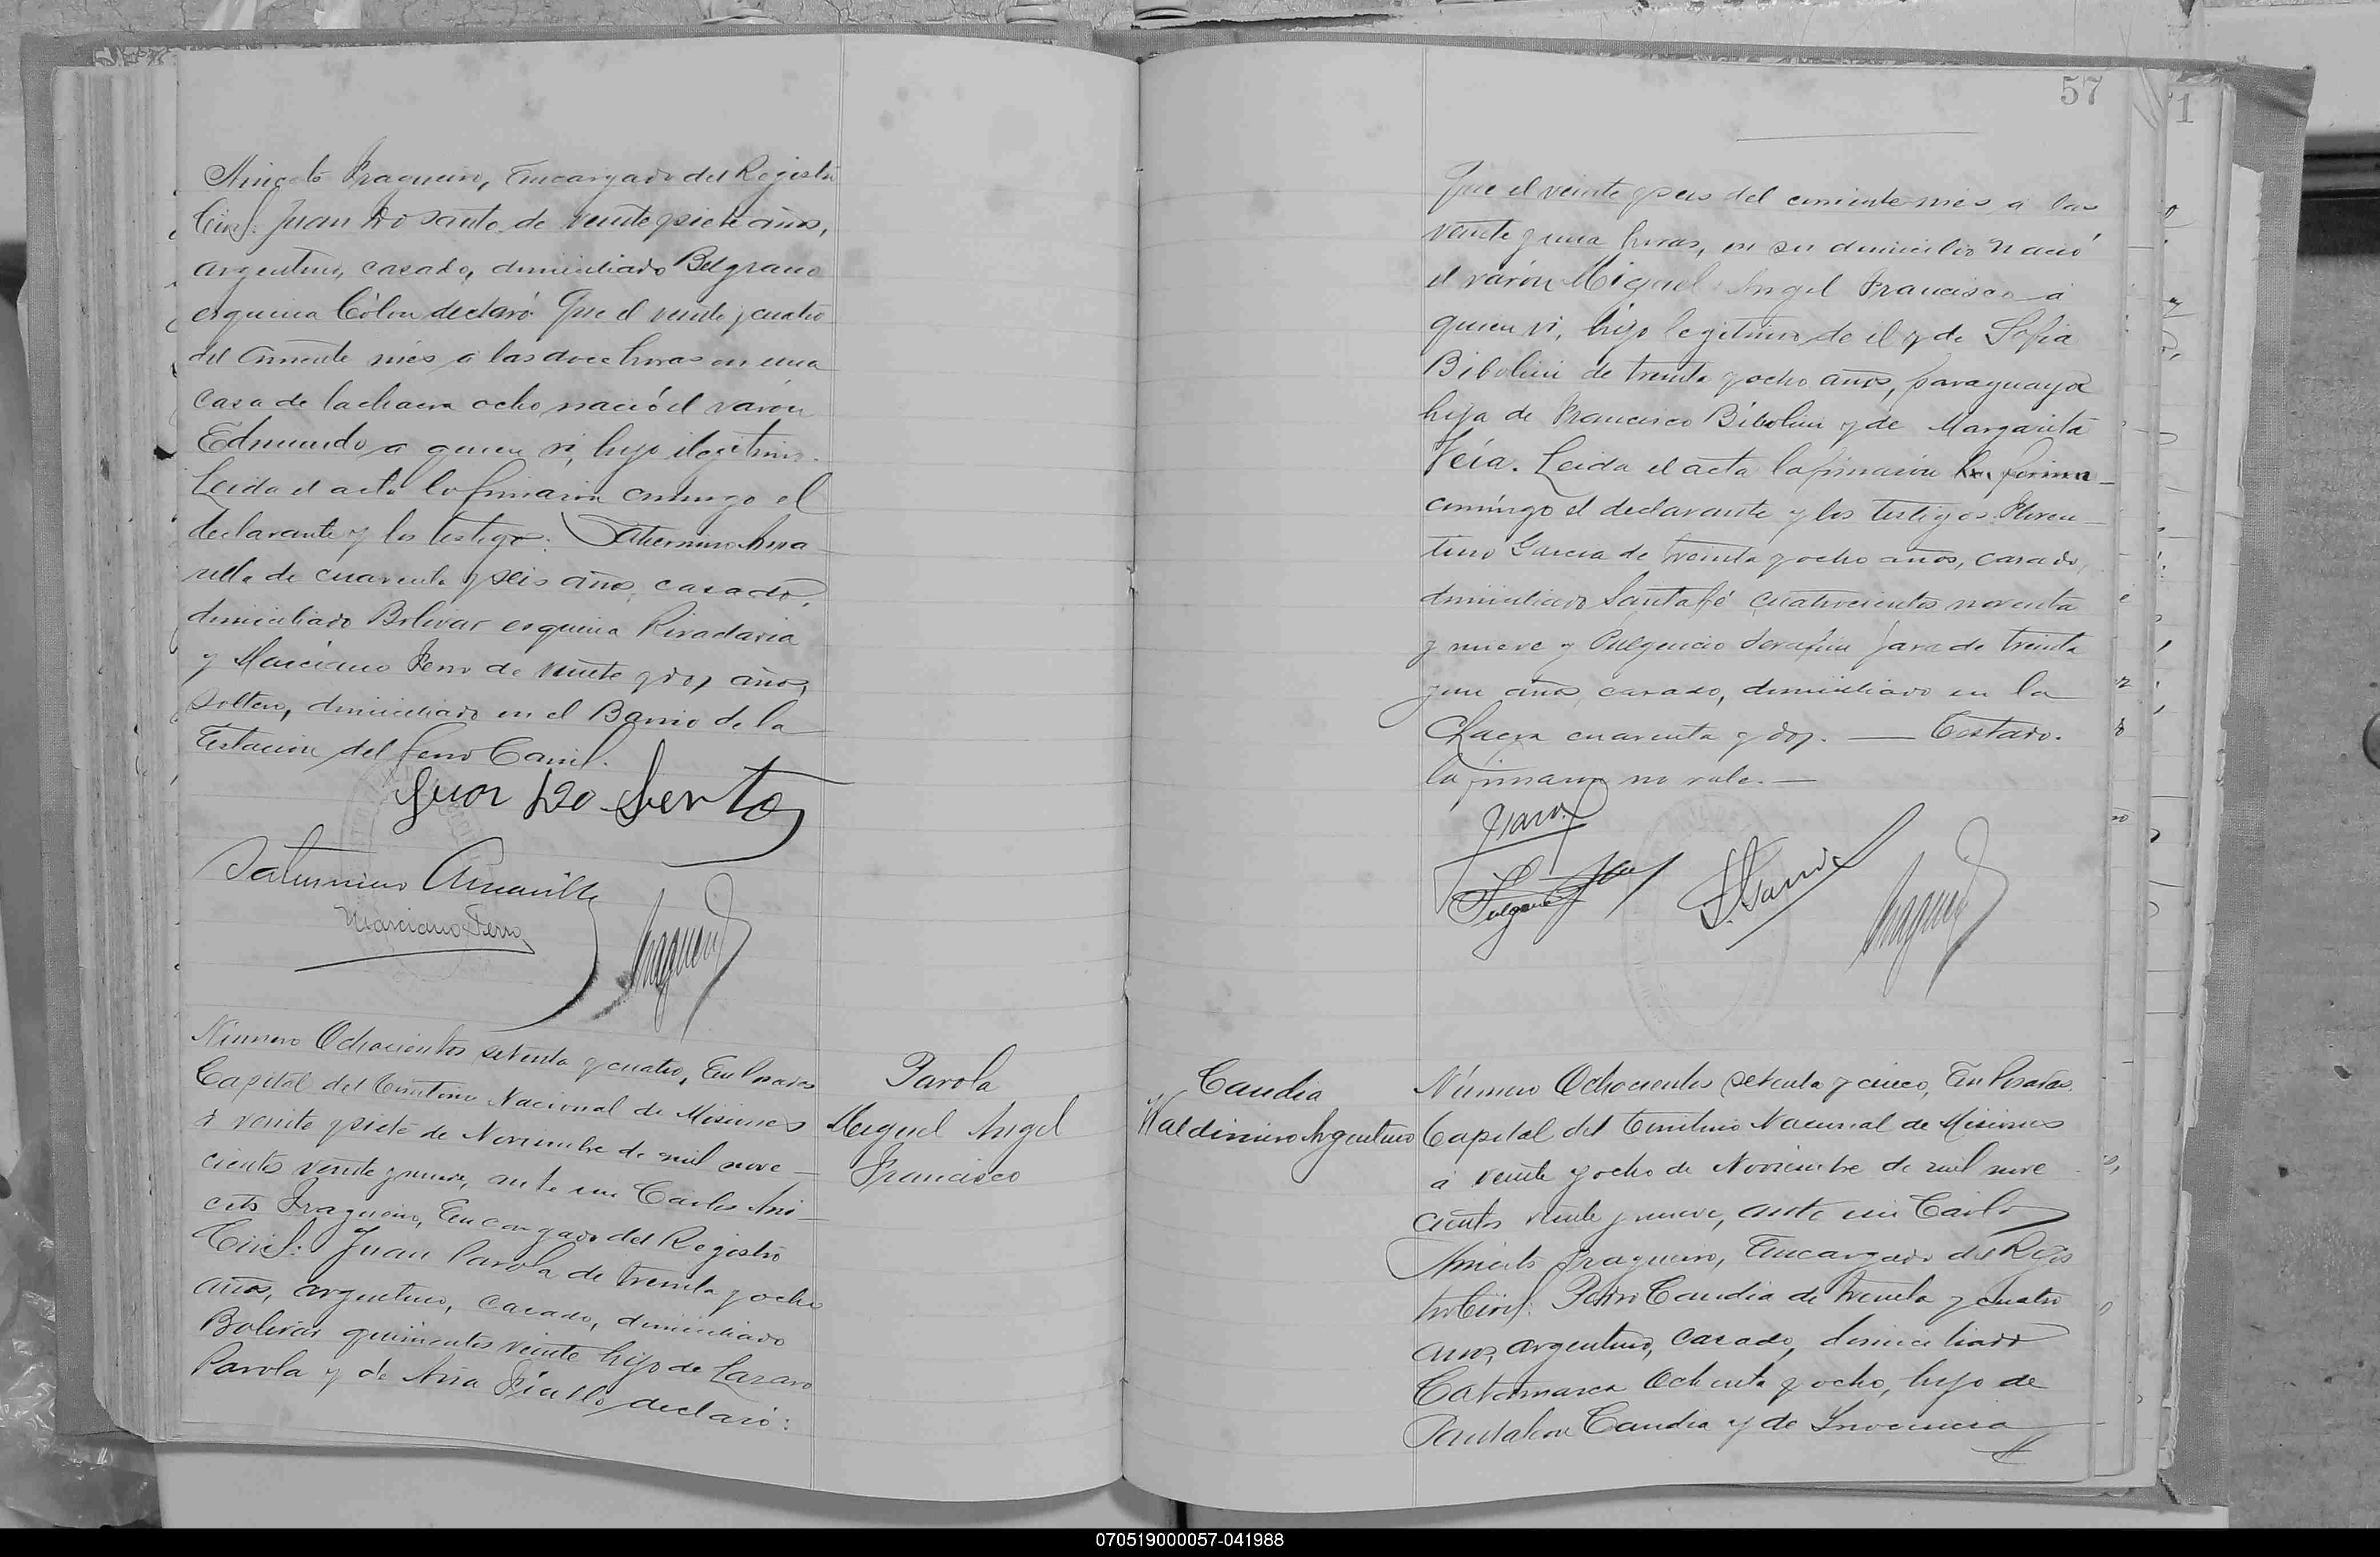 Aniceto Fragueiro, Encargado del Registro
Civil: Juan Do Santo de veinte y siete años,
argentino, casado, domiciliado Belgrano
esquina Cólon declaró: Que el veinte y cuatro
del corriente mes a las doce horas en una
casa de la chacra ocho nació el varon
Edmundo a quien vi, hijo ilegitimo.
Leida el acta la firmaron conmigo el
declarante y los testigos: Saturnino Ama
rilla de cuarenta y seis años, casado,
domiciliado Bolivar esquina Rivadavia
y Marciano Ferro de veinte y dos años,
soltero, domiciliado en el Barrio de la
Estacion del Ferro Carril.
Juan Do Santo
Saturnino Amarilla
Marciano Ferro
Fragueiro
Número Ochocientos setenta y cuatro, En Posadas
Capital del Territorio Nacional de Misiones
á veinte y siete de Noviembre de mil nove
cientos veinte y nueve, ante mi Carlos Ani
ceto Fragueiro, Encargado del Registro
Civil: Juan Parola de treinta y ocho
años, argentino, casado, domiciliado
Bolivar quinientos veinte hijo de Lazaro
Parola y de Ana declaró:
Parola
Miguel Angel
Francisco
57
Que el veinte y seis del corriente mes a las
veinte y una horas, en su domicilio nació
el varón Miguel Angel Francisco a
quien vi, hijo legitimo de el y de Sofia
Bibolini de treinta y ocho años, paraguaya
hija de Francisco Bibolini y de Margarita
Veia. Leida el acta la firmaron la firma
conmigo el declarante y los testigos Floren
tino Garcia de treinta y ocho años, casado,
domiciliado Santa Fé cuatrocientos noventa
y nueve y Fulgencio Serafin Jara de treinta
y un años, casado, domiciliado en la
Chacra cuarenta y dos. — Testado.
la firmaron no vale. —
Fulgencio Jara
F. Garcia
Fragueiro
Candia
Waldimiro Argentino
Número Ochocientos setenta y cinco, En Posadas
Capital del Territorio Nacional de Misiones
á veinte y ocho de Noviembre de mil nove
cientos veinte y nueve, ante mi Carlos
Aniceto Fragueiro, Encargado del Regis
tro Civil: Pedro Candia de treinta y cuatro
años, argentino, casado, domiciliado
Catamarca Ochenta y ocho, hijo de
Pantaleon Candia y de Inocencia
070519000057-041988